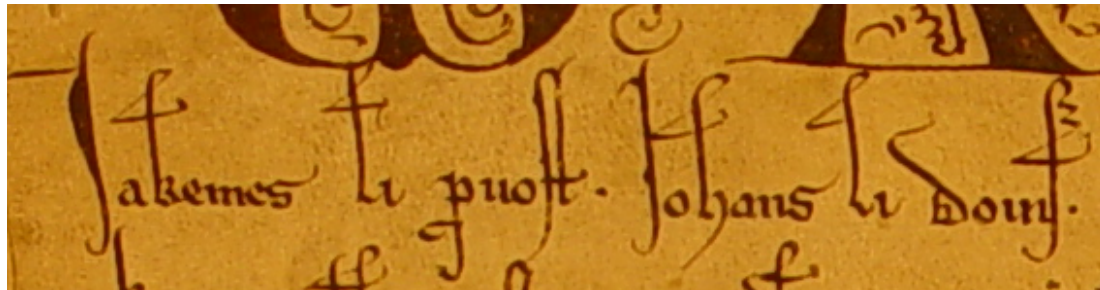 Jakemes li ꝓuoſt. Johans li doinſ.